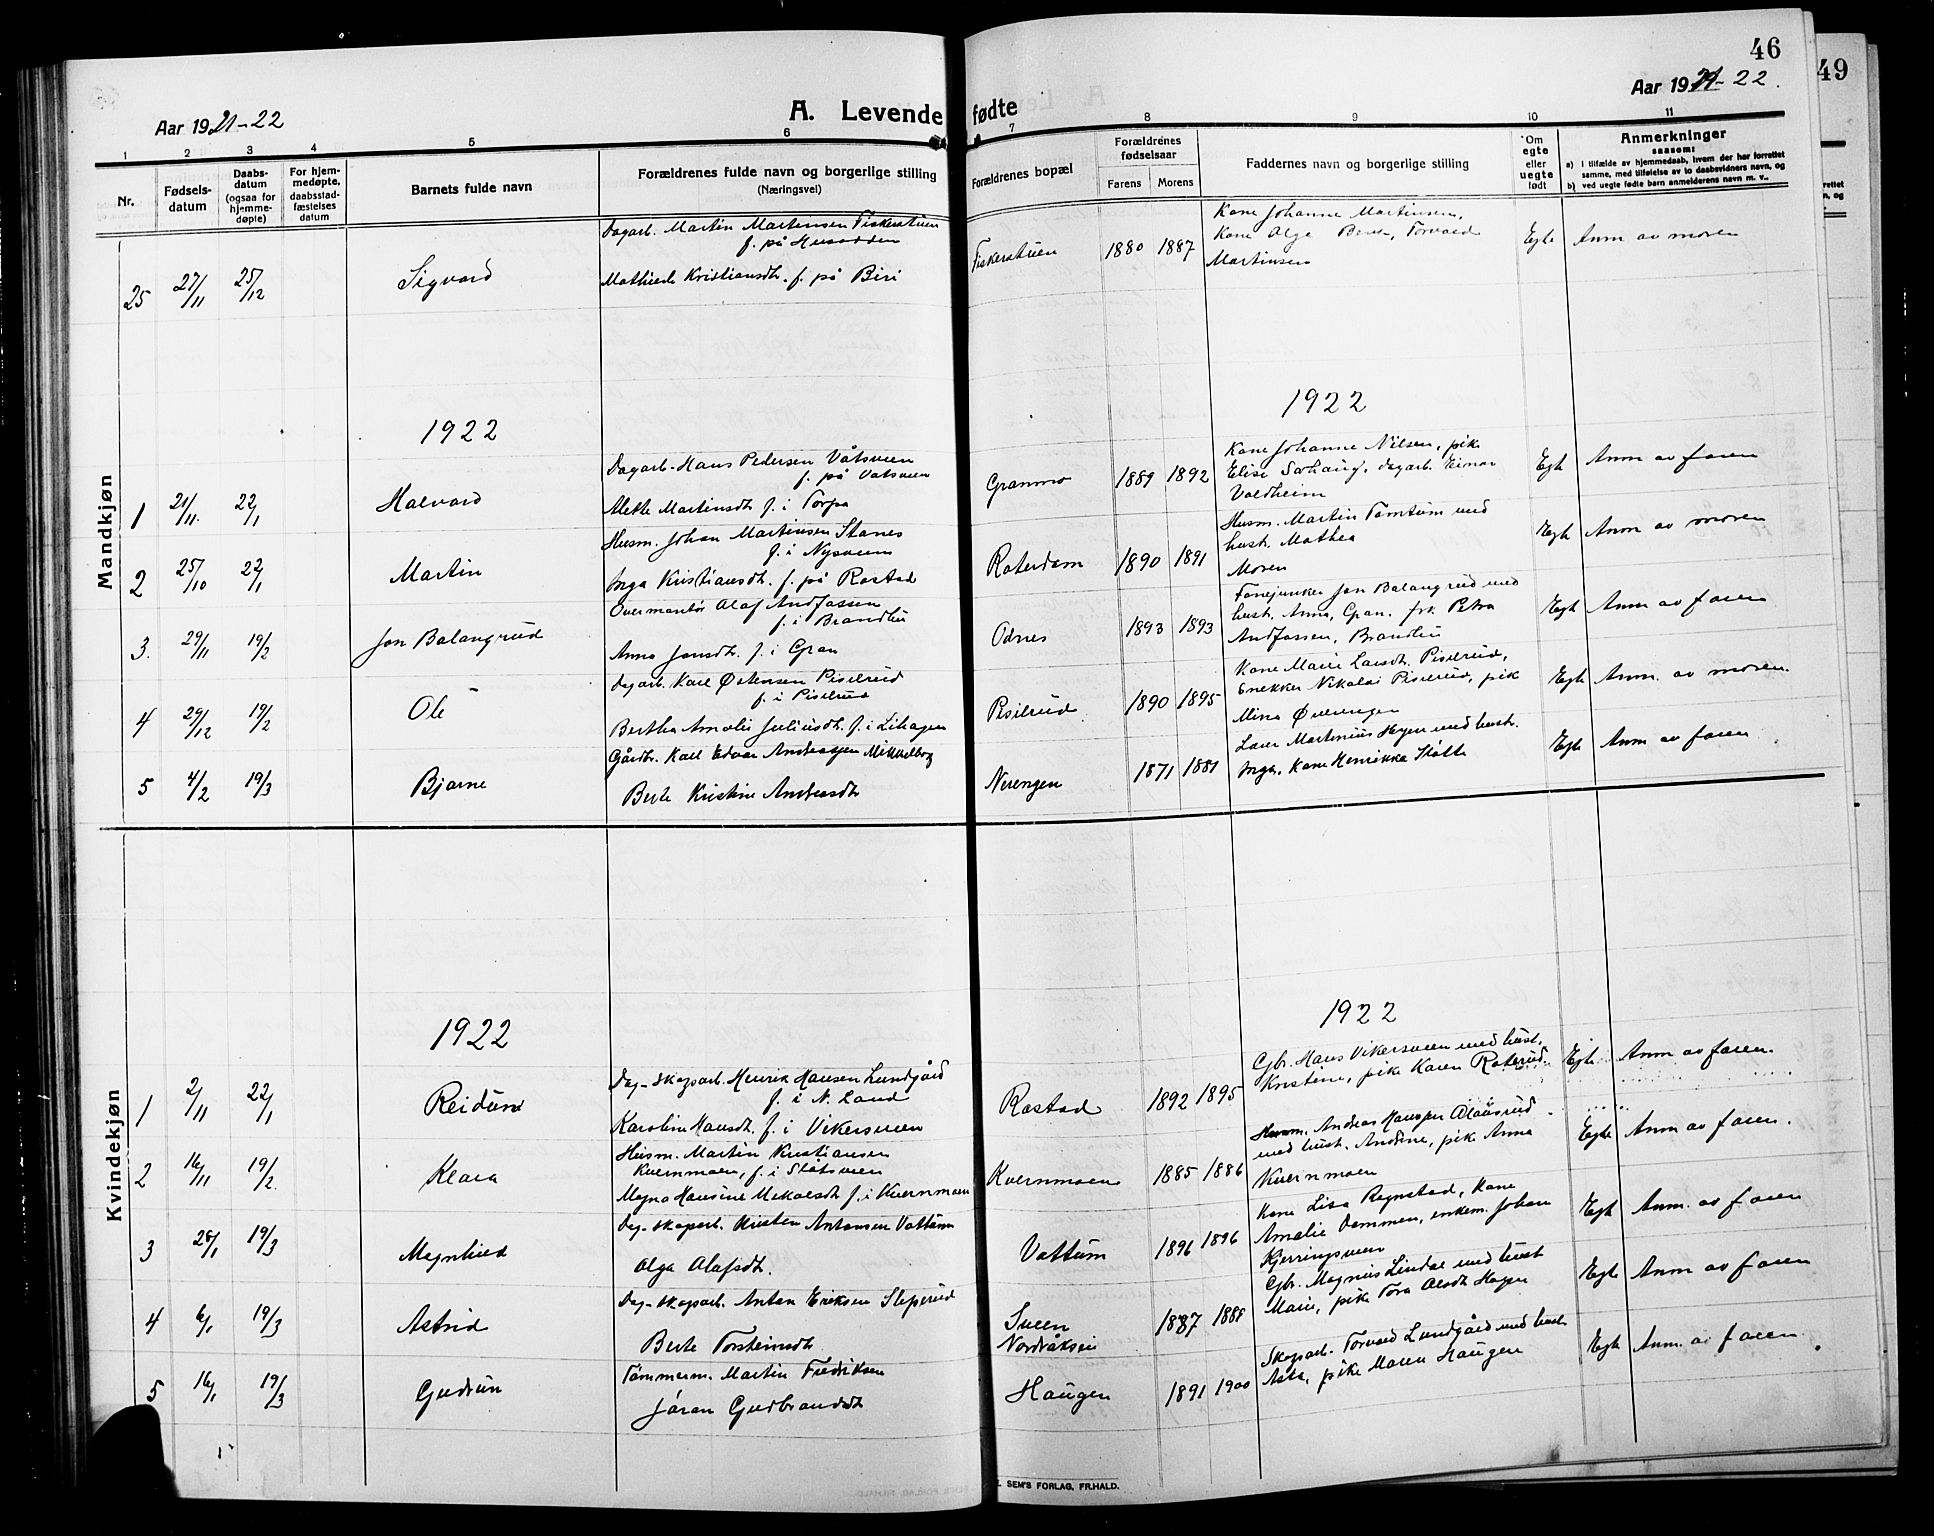 46
49
Aar 1921-22
A. Levende fødte
Aar 1921-22.
1 2 3 4 5 6 7 8 9 10 11
Nr.
Fødsels-
datum
Daabs-
datum
(ogsaa for
hjemme-
døpte)
For hjem-
medøpte,
daabsstad-
fæstelses
datum
Barnets fulde navn
Forældrenes fulde navn og borgerlige stilling
(Næringsvei)
Forældrenes bopæl
Forældrenes
fødselsaar
Farens Morens
Faddernes navn og borgerlige stilling
Om
egte
eller
uegte
født
Anmerkninger
saasom:
a) i tilfælde av hjemmedaab, hvem der har forrettet
samme, med tilføielse av to daabsvidners navn, og
b) ved uegte fødte barn anmelderens navn m. v..
Mandkjøn
25 27/11 25/12 Sigvard
Dagarb. Martin Martinsen Fiskerstuen
f. på Husodden
Mathilde Kristiansdt. f. på Biri
Fiskerstuen 1880 1887
Kone Johanne Martinsen,
Kone Olga Torvald
Martinsen
Egte Anm av moren
1922
1922
1 21/11 22/1 Halvard
Dagarb. Hans Pedersen Våtsveen
f. på Vatsveen
Mette Martinsdt f. i Torpa
Granmo 1889 1892
Kone Johanne Nilsen, pik.
Elise Sørhaug, dagarb. Einar
Valdheim
Egte Anm av faren
2 25/10 22/1 Martin
Husm. Johan Martinsen Stanes
f. i Nysveen
Inga Kristiansdt. f. på Rostad
Roterdam 1890 1891
Husm. Martin Tomtum med
hust. Mathea
Moren
Egte Anm av moren
3. 29/11 19/2 Jon Balangrud
Overmontør Olaf Andfossen
f. i Brandbu
Anna Jonsdt. f. i Gran
Odnes 1893 1893
Fanejunker Jon Balangrud med
hust. Anna, Gran. frk Petra
Andfossen, Brandbu
Egte Anm av faren
4 29/12 19/2 Ole
Dagarb. Karl Østensen Pisilrud
f. i Pisilrud
Bertha Amalie Juliusdt. f. i Lihagen
Pisilrud 1890 1895
Kone Marie Larsdt. Pisilrud,
Snekker Nikolai Pisilrud, pik
Mina Øverengen
Egte Anm. av moren.
5 4/2 19/3 Bjarne
Gårdbr. Karl Edvar Andreassen Mikkelborg
Berte Kristine Andersdt
Nerengen 1871 1881
Laur Martinius Hagen med hust.
Inga, Kone Henrikke Sløtte
Egte Anm av faren
Kvindekjøn
1922
1922
1 2/11 22/1 Reidun
Dag-skogarb. Henrik Hansen Lundgård
f. i N. Land
Karoline Hansdt. f. i Vikersveen
Rostad 1892 1895
Gbr. Hans Vikersveen med hust.
Kristine, pike Karen Roterud.
Egte Anm av faren.
2 16/11 19/2. Klara
Husm. Martin Kristiansen
Kvernmoen, f. i Slåtsveen
Magna Hansine Mikalsdt f. i Kvernmoen
Kvernmoen 1885 1886
Husm. Andreas Hansen
med hust. Andrine, pik Anna
Kvernmoen
Egte Anm av faren.
3 28/1 19/3 Magnhild
Dag-skogarb. Kristen Antonsen Vattum
Olga Olafsdt.
Vattum 1896 1896
Kone Lisa Rognstad, Kone
Amalie Dammen, enkem. Johan
Kjerringsveen
Egte Anm. av faren
4 6/1 19/3 Astrid
Dag-skogarb. Anton Eriksen Sliperud
Berte Torsteinsdt
Sveen
Nordråksei
1887 1888
Gbr. Magnus Lindal med hust
Marie, pike Tora Olsdt Hagen
Egte Anm av faren
5 16/1 19/3 Gudrun
Tømmerm. Martin Fredriksen
Jøran Gudbrandsdt
Haugen 1891 1900
Skogarb. Torvald Lundgård med hust
Asta, pike Maren Haugen
Egte Anm. av faren
SEM'S FORLAG, FR.HALD.